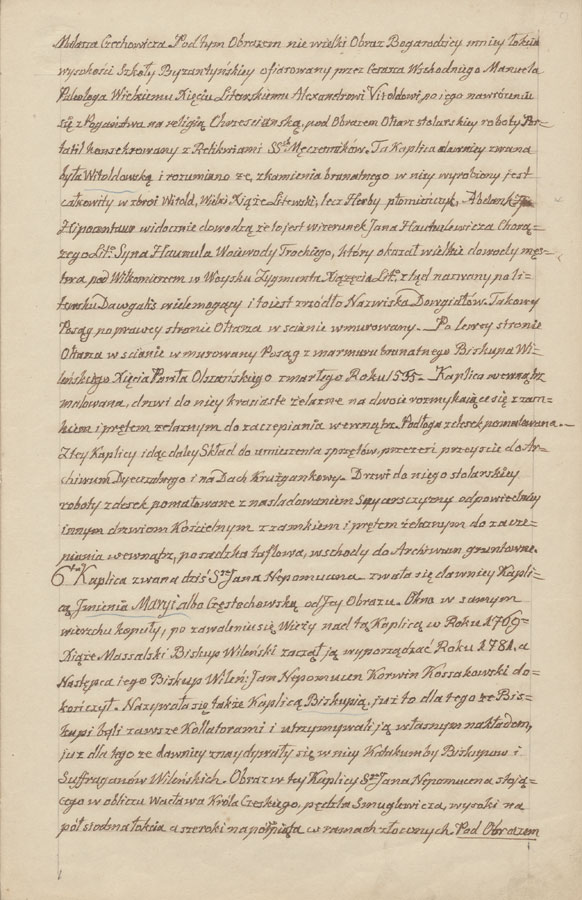 Malarza Czechowicza. Pod tym Obrazem nie wielki Obraz Bogarodzicy mniey łokcia
wysokości Szkoły Byzantyńskiey ofiarowany przez Cesarza Wschodniego Manuela
Paleologa Wielkiemu Xięciu Litewskiemu Alexandrowi Vitoldowi po iego nawróceniu
się z Pogaństwa na religią Chrześciańską, pod Obrazem Ołtarz stolarskiey roboty Por=
tatil konsekrowany z Relikwiami SS. Męczenników. Ta Kaplica dawniey zwana
była Witoldowską i rozumiano że, z kamienia brunatnego w niey wyrobiony jest
całkowity w zbroi Witold, Wielki Xiąże Litewski, lecz Herby płomieńczyk, Abdank
Hipocentaur widocznie dowodzą że to jest wizerunek Jana Hawtułowicza Chorą=
żego Lit. Syna Hawnula Woiewody Trockiego, który okazał wielkie dowody męz=
twa pod Wilkomierzem w Woysku Zygmunta Xiążęcia Lit. z tąd nazwany po li=
tewsku Dawgalis wiele mogący i to iest źrzódło Nazwiska Dowgiałłów. Takowy
Posąg po prawey stronie Ołtarza w ścianie wmurowany. — Po lewey stronie
Ołtarza w ścianie w murowany Posąg z marmuru brunatnego Biskupa Wi=
leńskiego Xięcia Pawła Olszańskiego zmarłego Roku 1555.— Kaplica wewnątrz
malowana, drzwi do niey krasiaste żelazne na dwoie rozmykaiące się z zam=
kiem i prętem żelaznym do zaczepiania wewnątrz. Podłoga z desek pomalowana.—
Z tey Kaplicy idąc daley Skład do umieszczenia sprzętów, przezeń przeyście do Ar=
chiwum Dyecezalnego i na Dach Krużgankowy.— Drzwi do niego stolarskiey
roboty z desek pomalowane z nasladowaniem odpowiedniey
innym drzwiom Kościelnym z zamkiem i prętem żelaznym do zacze=
piania wewnątrz, posadzka tuflowa, wschody do Archiwum gruntowne.
6ta Kaplica zwana dziś Sgo Jana Nepomucena zwała się dawniey Kapli=
cą Jmienia Maryi albo Częstochowską od Jey Obrazu. Okno w samym
wierzchu kopuły, po zawaleniu się Wieży nad tą Kaplicą w Roku 1769=
Xiąże Massalski Biskup Wileński zaczął ją wyporządzać Roku 1781, a
Następca iego Biskup Wileń: Jan Nepomucen Korwin Kossakowski do=
kończył. Nazywała się także Kaplicą Biskupią, już to dla tego że Bis=
kupi byli zawsze Kollatorami i utrzymywali ją własnym nakładem,
już dla tego że dawniey znaydywały się w niey Katakumby Biskupow i
Suffraganów Wileńskich. Obraz w tey Kaplicy Sgo Jana Nepomucena stoją=
cego w obliczu Wacława Króla Czeskiego, pędzla Smuglewicza, wysoki na
pół siodma łokcia a szeroki na półpięta w ramach złoconych. Pod Obrazem